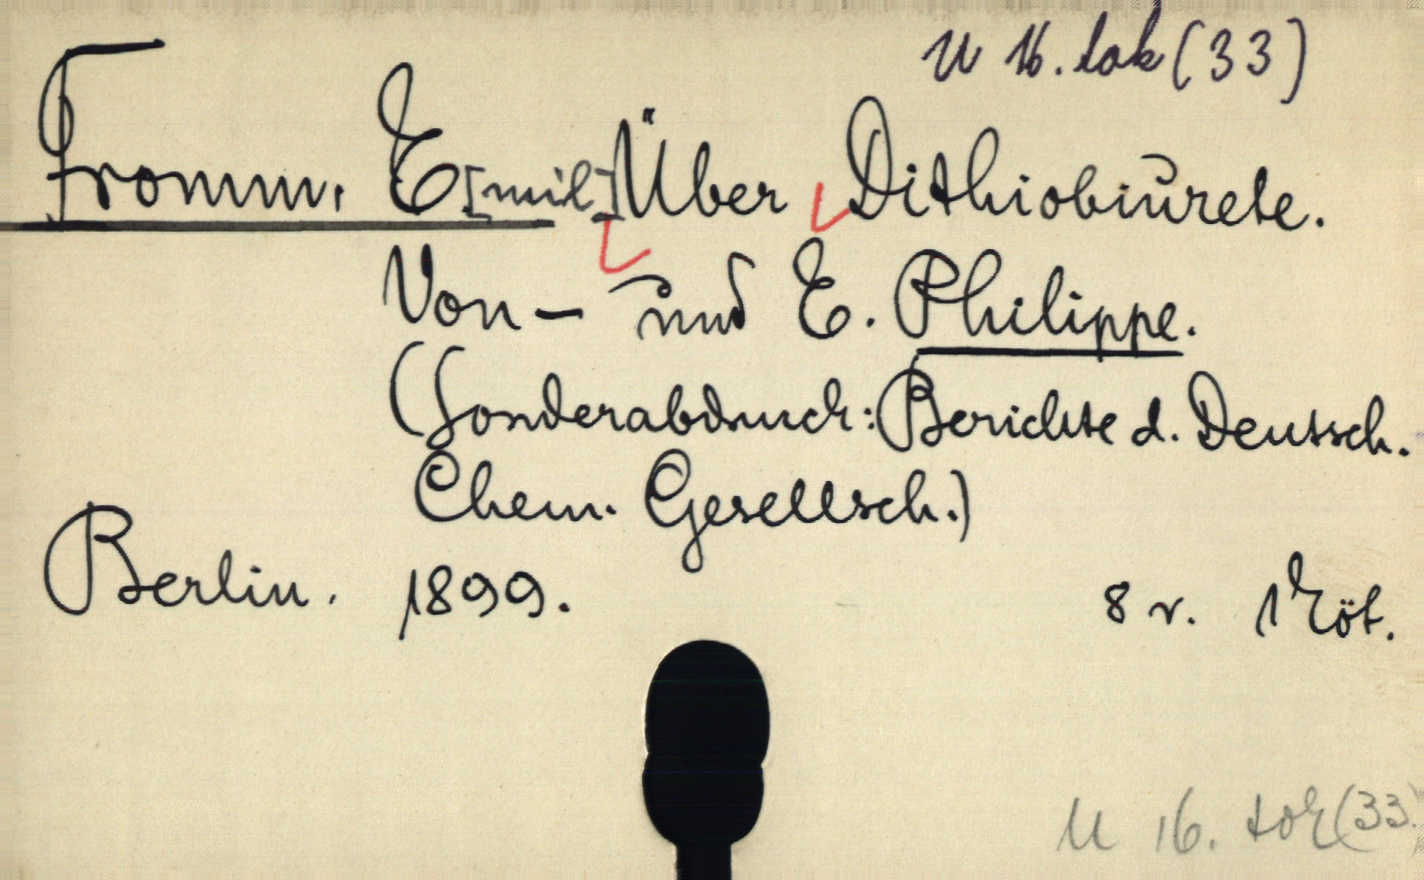 U 16. tok (33)
Fromm, E[mil] Über Dithiobiurete.
Von — und E. Philippe.
(Sonderabdruck: Berichte d. Deutsch.
Chem. Gesellsch.)
Berlin. 1899. 8 r. 1 köt.
U 16. tok (33.